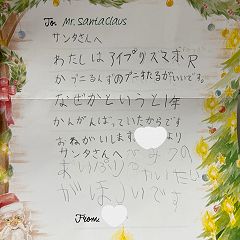 To Mr. santa claus
サンタさんへ
わたしは アイプリ スマホ R
か プニるんずの プニ すたるがいいです。
なぜかというと1年
かんがんばっていたからです
おねがいします。 より
サンタさんへ
がほしいです
From